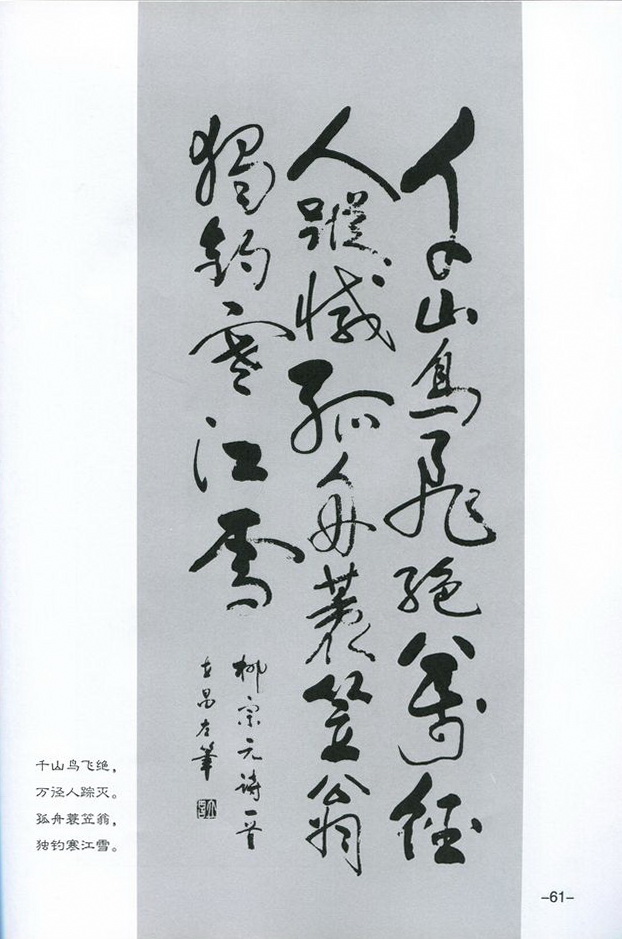 千山鳥飛絕萬徑
人蹤滅孤舟蓑笠翁
獨釣寒江雪
柳宗元詩一首
昌左筆
千山鸟飞绝，
万径人踪灭。
孤舟蓑笠翁，
独钓寒江雪。
-61-